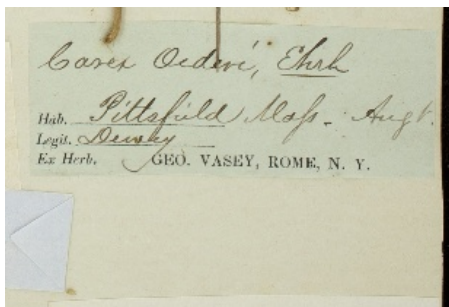 Carex Oederi, Ehrh
Hab. Pittsfield Mass. Augt.
Legit. Dewey
Ex Herb. GEO. VASEY, ROME, N. Y.